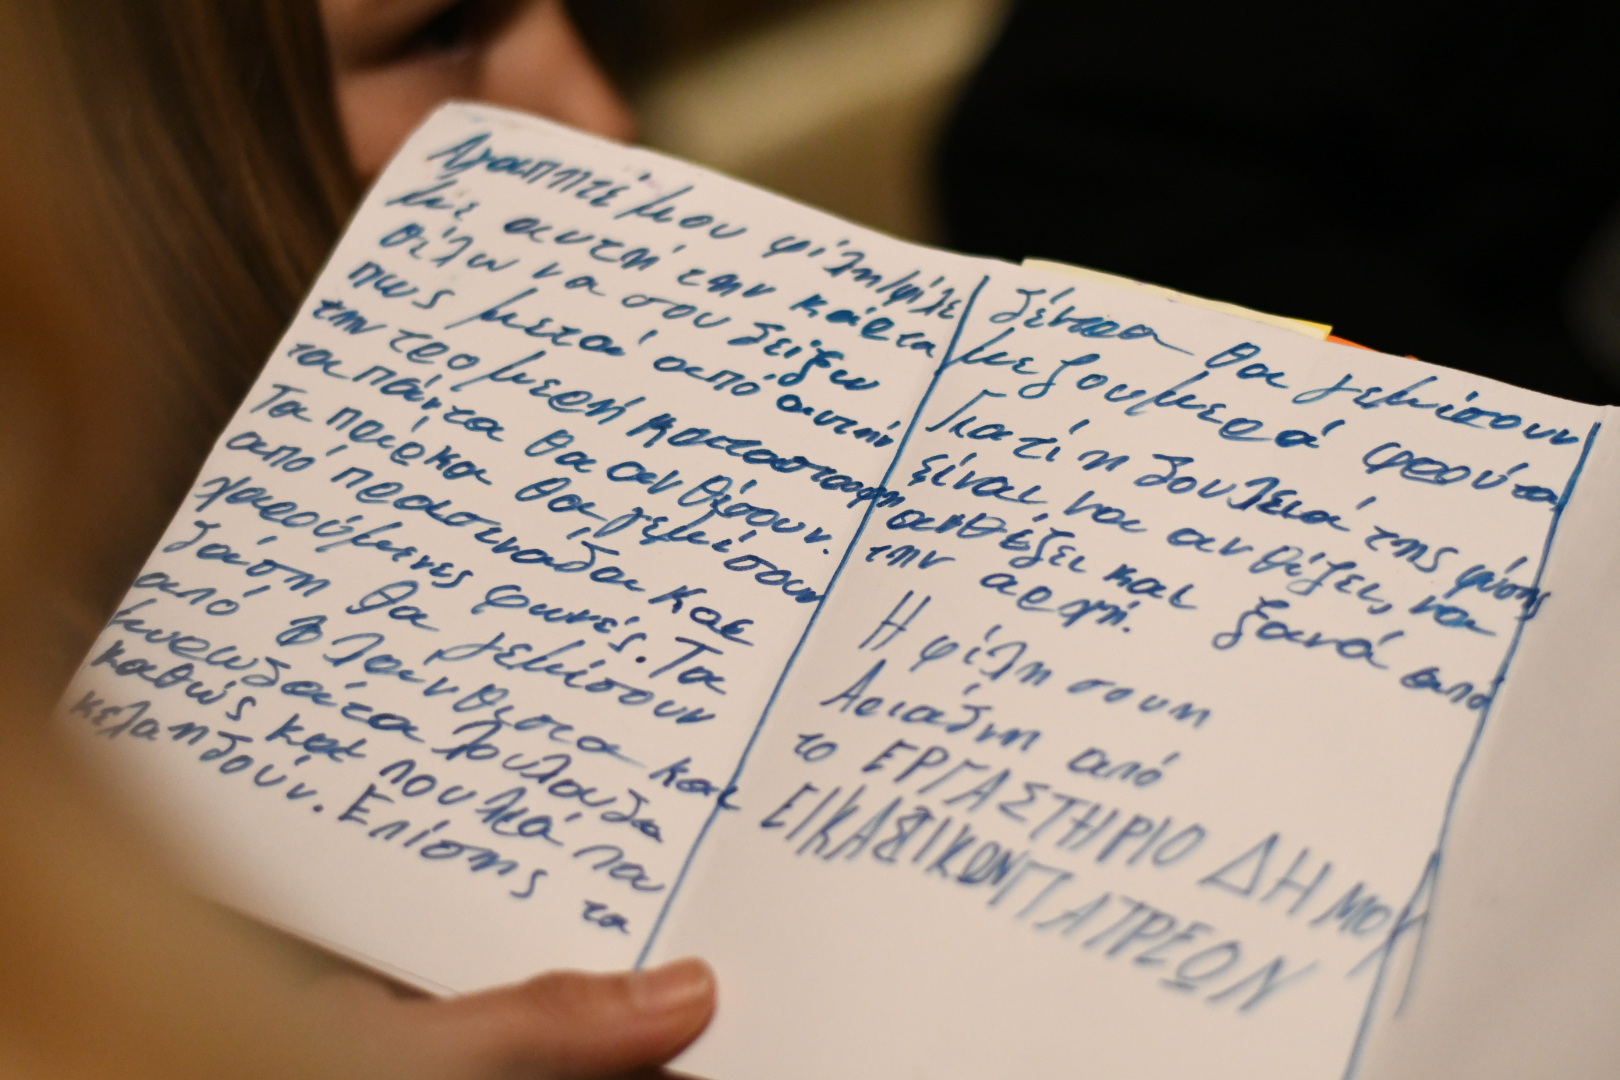 Αγαπητέ μου φίλη/φίλε
Με αυτή την κάρτα
θέλω να σου δείξω
πως μετά από αυτήν
την τρομερή καταστροφή
τα πάντα θα ανθίσουν.
Τα πάρκα θα γεμίσουν
από πρασινάδα και
χαρούμενες φωνές. Τα
δάση θα γεμίσουν
από βλάνθεστα και
μυρωδάτα λουλούδα
καθώς και πουλιά που
κελαηδούν. Επίσης τα
δέντρα θα γεμίσουν
με ζουμερά φρούτα,
Γιατί η δουλειά της φύσης
είναι να ανθίζει, να
ανθέξει και ξανά από
την αρχή.
Η φίλη σου η
Αριάδνη από
το ΕΡΓΑΣΤΗΡΙΟ ΔΗΜΟΥ
ΕΙΚΑΣΤΙΚΩΝ ΠΑΤΡΕΩΝ